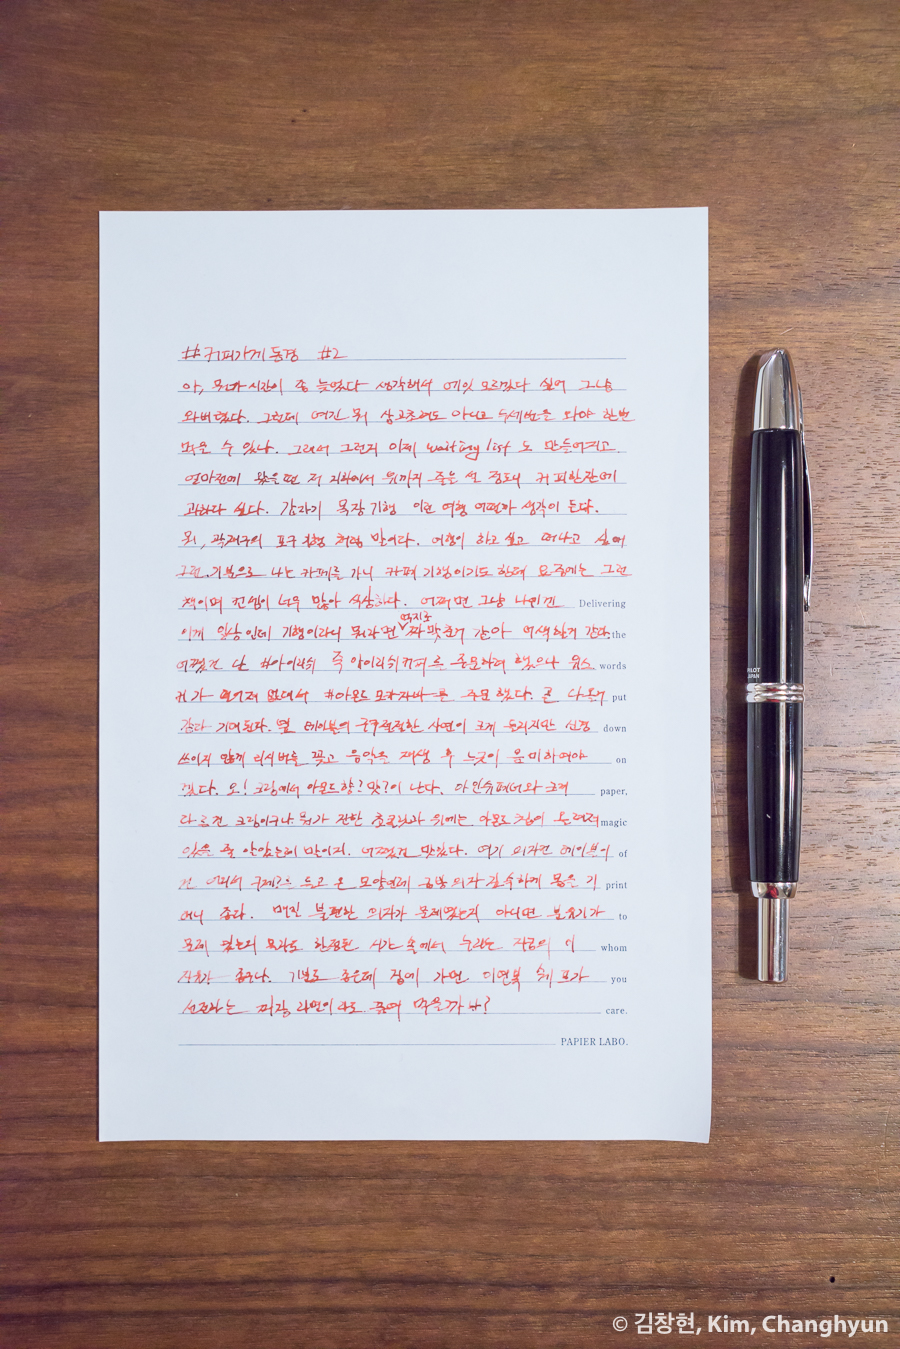 #커피가게 동경 #2
아, 뭔가 시간이 좀 늦었다 생각해서 에잇 모르겠다 싶어 그냥
와버렸다. 그런데 여긴 뭐 삼고초려도 아니고 두세번은 와야 한번
먹을 수 있나. 그래서 그런지 이제 waiting list 도 만들어지고
얼마전에 왔을 땐 저 지하에서 위까지 줄을 선 정도니 커피한잔에
과하다 싶다. 갑자기 목장기행 이란 여행 어떨까 생각이 든다.
뭐, 곽재구의 포구기행 처럼 말이다. 여행이 하고 싶고 떠나고 싶어
그런 기분으로 나는 카페를 가니 카페 기행이기도 한데 요즘에는 그런
책이며 컨셉이 너무 많아 식상하다. 어쩌면 그냥 나에겐 Delivering
이게 일상인데 기행이라니 뭐라면 억지로 짜맞춘거 같아 어색한거 같다. the
어쨌건 난 #아이리쉬 즉 아이리쉬커피를 주문하려 했으나 words
가 없어서 #아몬드모카자바 를 주문했다. 곧 나올거 put
같다 기대된다. 옆 테이블의 구구절절한 사연이 크게 들리지만 신경 down
쓰이지 않게 리시버를 꽂고 음악을 재생 후 느긋이 음미하여야 on
겠다. 오! 크림에서 아몬드향? 맛?이 난다. 아인슈페너와 그저 paper,
다른건 크림이구나 뭔가 진한 초콜릿과 위에는 아몬드칩이 올려져 magic
있을 줄 알았는데 말이지. 어쨌건 맛있다. 여기 의자건 테이블이 of
건 어디서 구제?를 들고 온 모양인데 금방 의자 깊숙하게 몸을 기 print
대니 좋다. 매번 불편한 의자가 문제였는지 아니면 분위기가 to
문제 였는지 모르는 한정된 시간 속에서 누리는 지금의 이 whom
사치가 좋구나. 기별로 좋은데 집에 가면 이연복 쉐프가 you
선전하는 짜장 라면이라도 끓여 먹을까나? care.
PAPIER LABO.
PILOT
JAPAN
© 김창현, Kim, Changhyun